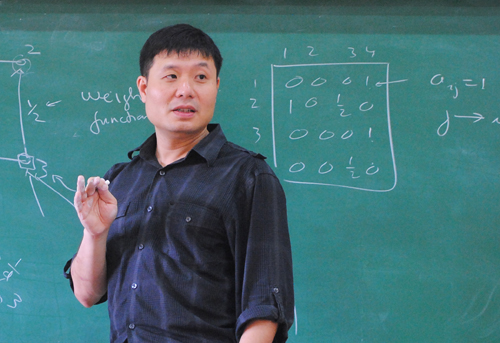 2
1/2 ← Weigh
function
3
1 2 3 4
1 0 0 0 1
2 1 0 1/2 0
3 0 0 0 1
0 0 1/2 0
a_ij = 1
j →